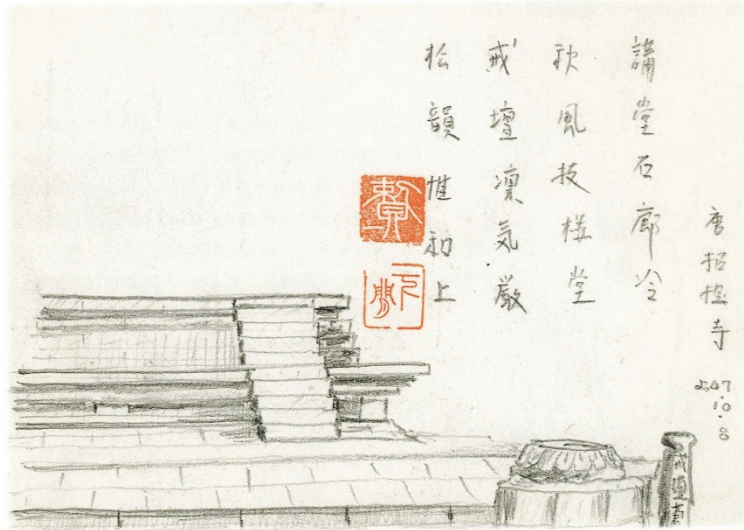 唐招提寺
昭47.10.8
講堂石廊冷
秋風技堂
戒壇凛気厳
松韻惟和上
戒壇